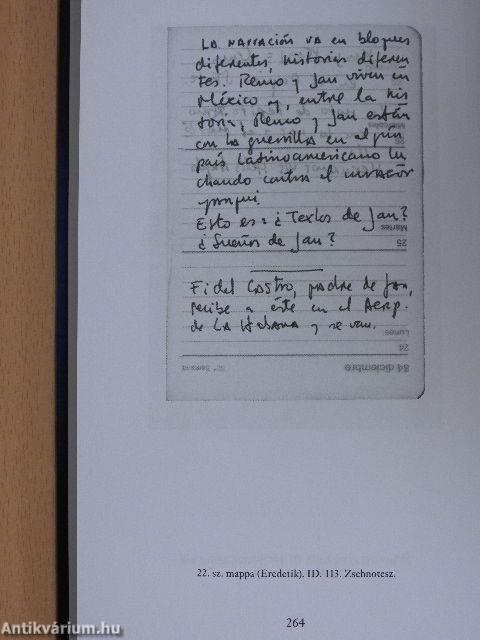 LA NARRACIÓN VA en bloques
diferentes, historias diferen
tes. Remo y Jan viven en
México y, entre la his
toria, Remo y Jan están
con la guerrilla en algún
país Latinoamericano lu
chando contra el invasor
yanqui.
Esto es: ¿Textos de Jan?
¿Sueños de Jan?
Martes
25
Fidel CASTRO, padre de Jan,
recibe a éste en el Aerop.
de LA Habana y se van.
Lunes
24
84 diciembre
22. sz. mappa (Eredetik). ID. 113. Zsebnotesz.
264
Antikvárium.hu